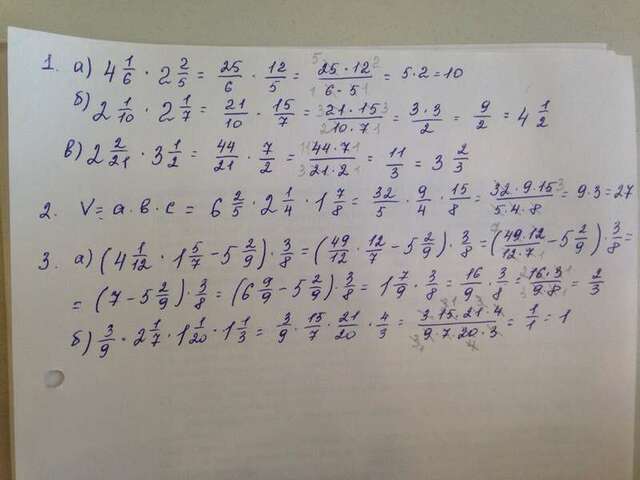 1. а) 4 1/6 · 2 2/5 = 25/6 · 12/5 = 25·12/6·5 = 5·2=10
б) 2 1/10 · 2 1/7 = 21/10 · 15/7 = 21·15/10·7 = 3·3/2 = 9/2 = 4 1/2
в) 2 2/21 · 3 1/2 = 44/21 · 7/2 = 44·7/21·2 = 11/3 = 3 2/3
2. V = a·b·c = 6 2/5 · 2 1/4 · 1 7/8 = 32/5 · 9/4 · 15/8 = 32·9·15/5·4·8 = 9·3=27
3. а) (4 1/12 · 1 5/7 - 5 2/9) · 3/8 = (49/12 · 12/7 - 5 2/9) · 3/8 = (49·12/12·7 - 5 2/9) · 3/8 =
= (7 - 5 2/9) · 3/8 = (6 9/9 - 5 2/9) · 3/8 = 1 7/9 · 3/8 = 16/9 · 3/8 = 16·3/9·8 = 2/3
б) 3/9 · 2 1/7 · 1 1/20 · 1 1/3 = 3/9 · 15/7 · 21/20 · 4/3 = 3·15·21·4/9·7·20·3 = 1/1 = 1